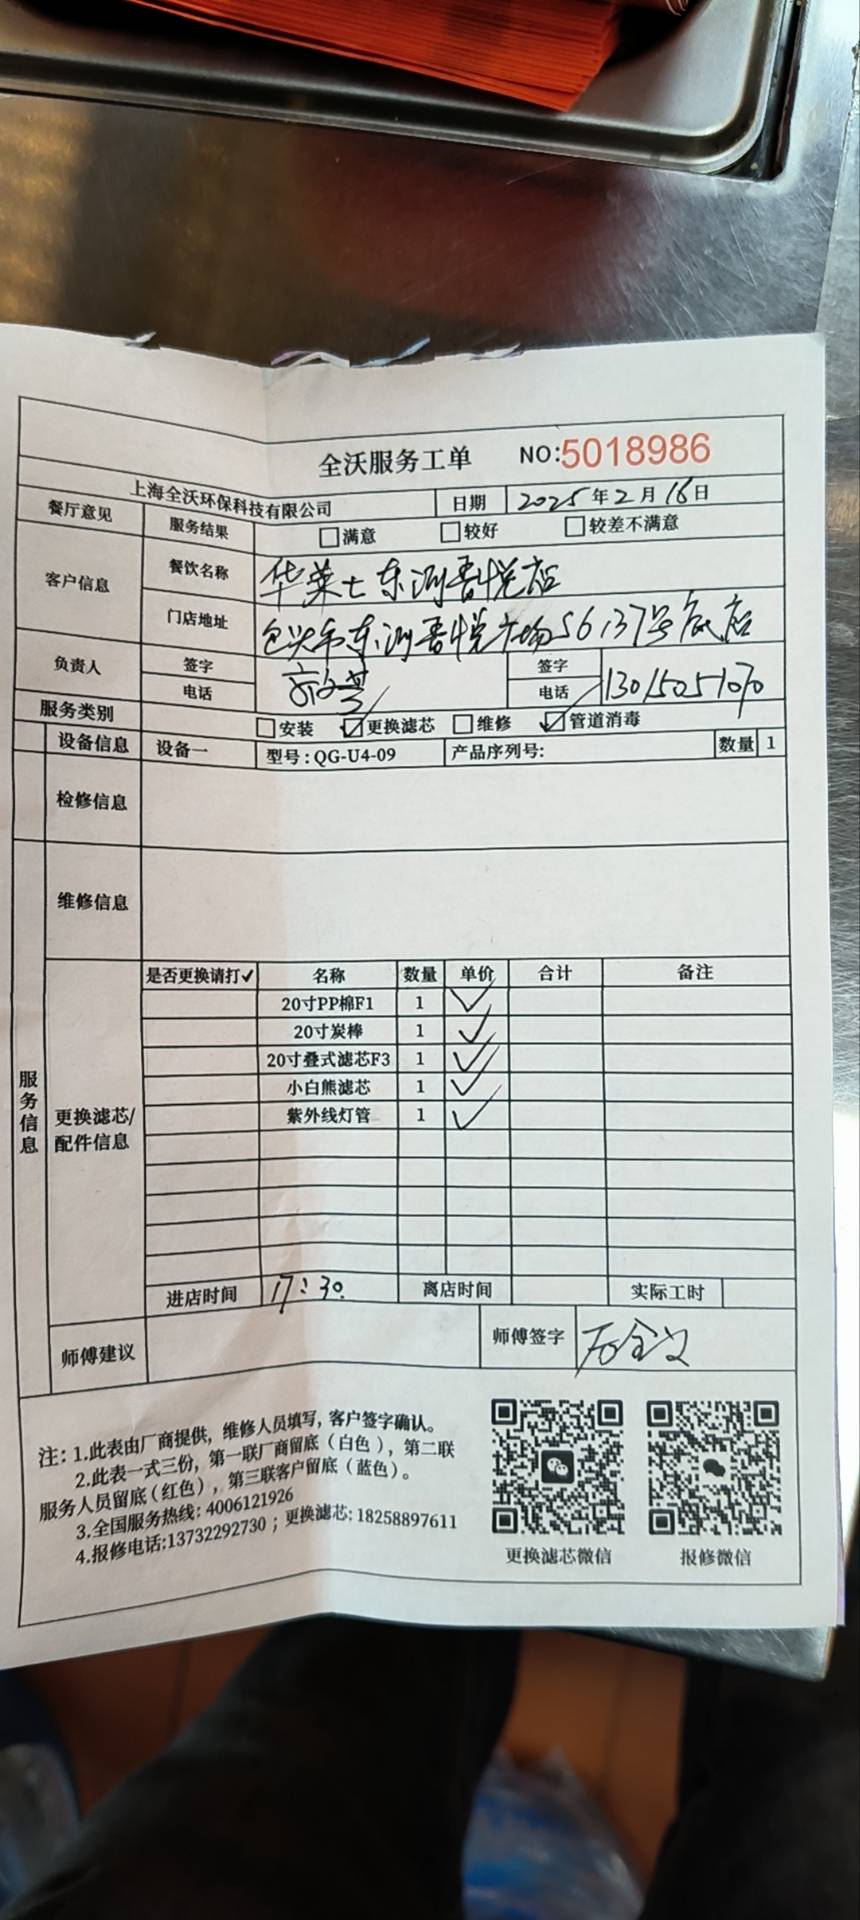 全沃服务工单 NO:5018986
上海全沃环保科技有限公司 日期 2025年2月16日
餐厅意见 服务结果 满意 较好 较差不满意
客户信息 餐饮名称 华莱士东河吾悦店
门店地址 包头市东河吾悦广场S6137号底店
负责人 签字 签字
电话 电话 13015051070
服务类别 安装 更换滤芯 维修 管道消毒
设备信息 设备一 型号:QG-U4-09 产品序列号: 数量 1
检修信息
维修信息
服务信息
更换滤芯/配件信息
是否更换请打✓ 名称 数量 单价 合计 备注
20寸PP棉F1 1 ✓
20寸炭棒 1 ✓
20寸叠式滤芯F3 1 ✓
小白熊滤芯 1 ✓
紫外线灯管 1 ✓
进店时间 17:30 离店时间 实际工时
师傅建议 师傅签字
注:1.此表由厂商提供,维修人员填写,客户签字确认。
2.此表一式三份,第一联厂商留底(白色),第二联
服务人员留底(红色),第三联客户留底(蓝色)。
3.全国服务热线:4006121926
4.报修电话:13732292730;更换滤芯:18258897611
更换滤芯微信 报修微信